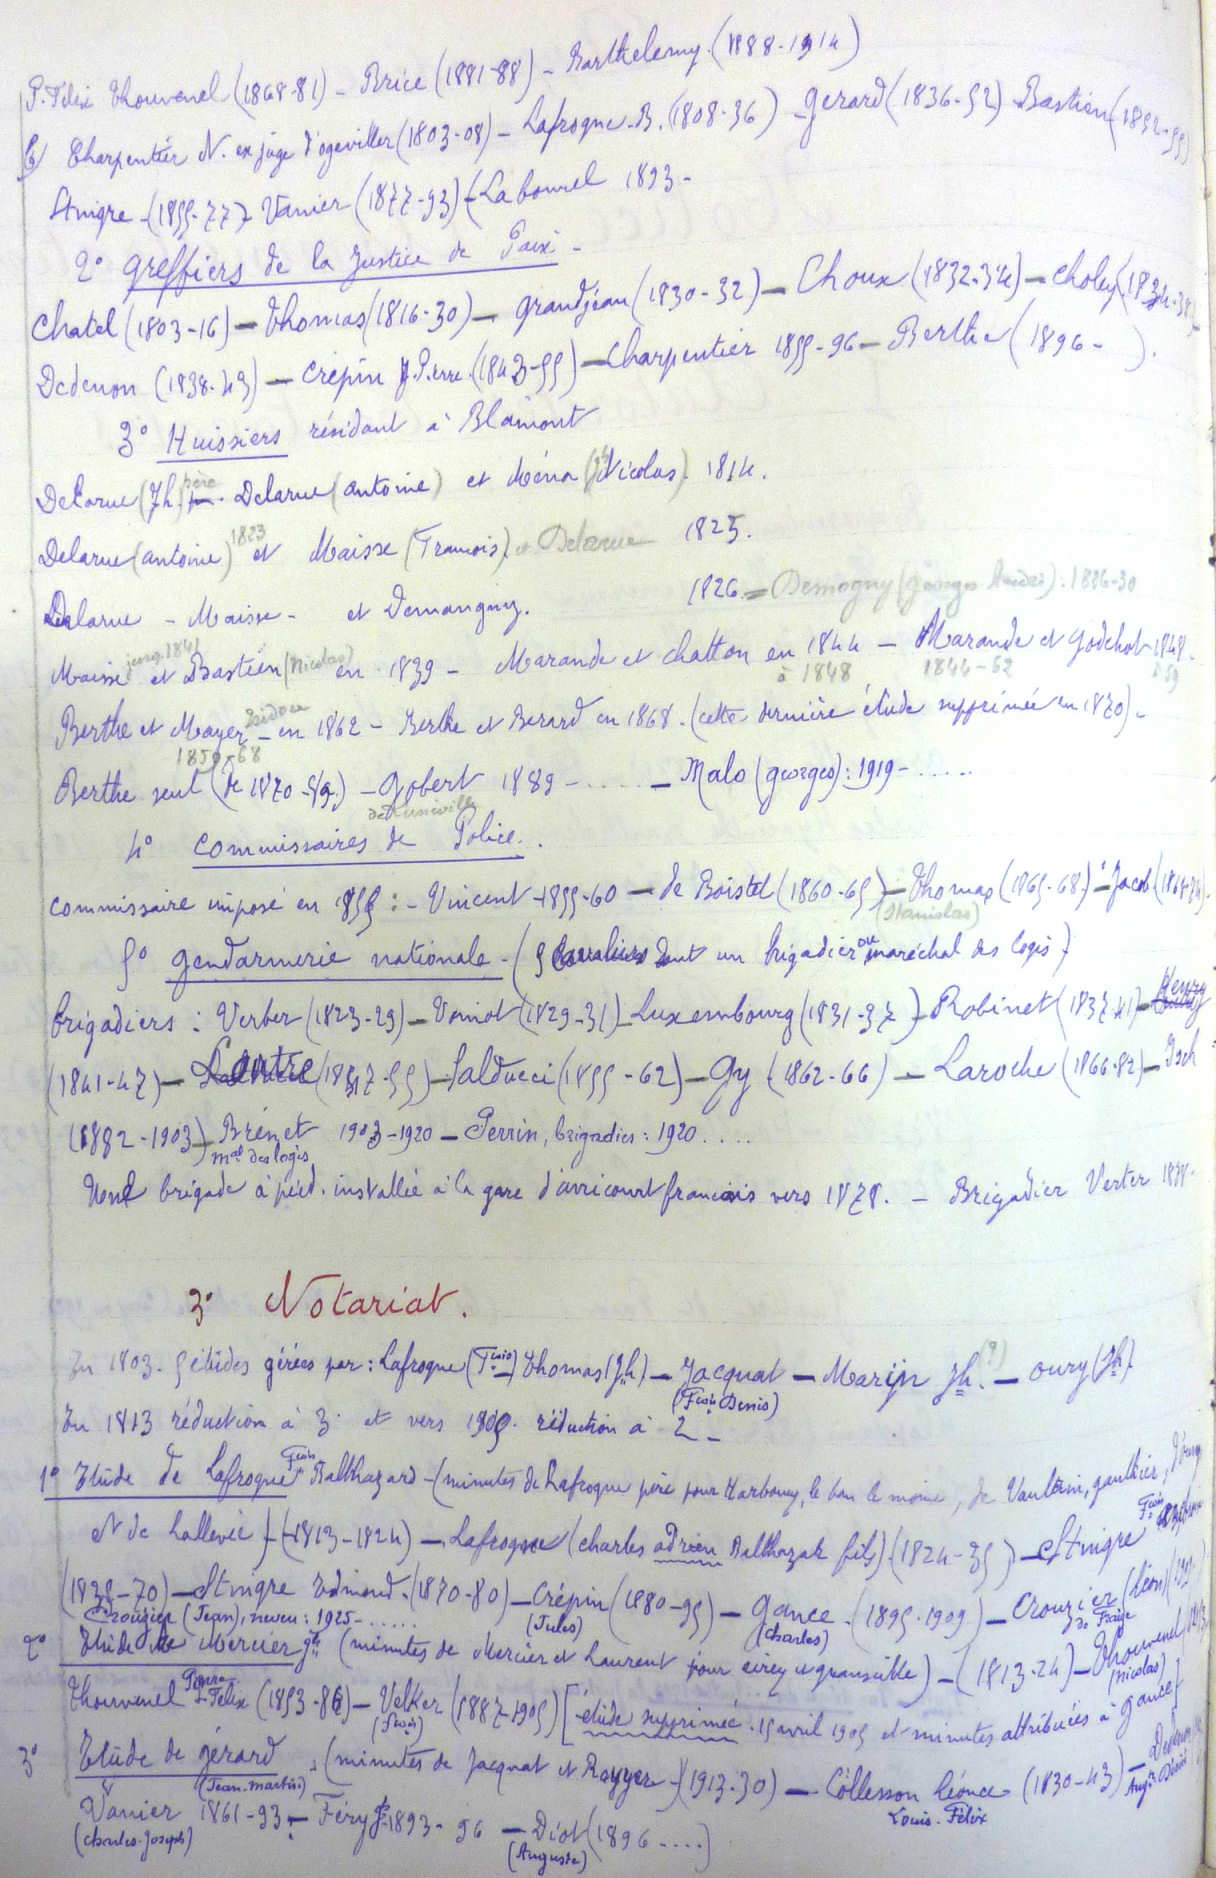 P. Félix Thouvenel (1868-81) - Brice (1881-88) - Barthelemy (1888-1914)
Charpentier N. ex juge d'ogeviller (1803-08) - Lafrogne B. (1808-36) - Gerard (1836-52) Bastien (1852-55)
Stnigre - (1855-77) - Vanier (1877-93) - Labourel 1893 -
2° Greffiers de la Justice de Paix -
Chatel (1803-16) - Thomas (1816-30) - Grandjean (1830-32) - Choux (1832-34) - Choley (1834-38) -
Dedenon (1838-43) - Crépin J. Pierre (1843-55) - Charpentier 1855-96 - Berthe (1896 - ).
3° Huissiers résidant à Blâmont
Delarue (Jh.) père - Delarue (antoine) et Ména (Nicolas). 1814.
Delarue (antoine) 1823 et Maisse (François) et Delarue 1825.
Delarue - Maisse - et Demangeny. 1826 = Demogny (Georges André) : 1826-30
Maisse jusq. 1841 et Bastien (Nicolas) en 1839 - Marande et Chatton en 1844 - Marande et Godchot 1848
à 1848 1844-62 à 59
Berthe et Mayer Isidore - en 1862 - Berthe et Berard en 1868. (cette dernière étude supprimée en 1870) -
1859-68
Berthe seul (de 1870-89) - Gobert 1889 - ..... - Malo (georges) : 1919 - .....
de Réméville
4° Commissaires de Police.
Commissaire imposé en 1855 : - Vincent - 1855-60 - de Boistel (1860-65) - Thomas (1865-68) - Jacob (1868-74).
(Stanislas)
5° Gendarmerie nationale - (5 cavaliers dont un brigadier ou maréchal des logis)
brigadiers : Verber (1823-29) - Voinot (1829-31) - Luxembourg (1831-37) - Robinet (1837-41) - Henry
(1841-47) - Lentre (1847-55) - Salducci (1855-62) - Gy (1862-66) - Laroche (1866-82) - Isch
(1882-1903) - Brénet 1903-1920 - Perrin, brigadier : 1920 ....
mal des logis
Une brigade à pied. installée à la gare d'avricourt francais vers 1878. - Brigadier Verter 1878 -
3° Notariat.
En 1803. 5 études gérées par : Lafrogne (Fçois) Thomas (Jh) - Jacquat - Marijn Jh. (?) - oury (Jh)
(Fçois Denis)
En 1813 réduction à 3. et vers 1905. réduction à 2 -
1° Etude de Lafrogne Fçois Balthazard - (minutes de Lafrogne père pour Harbouey, le ban le moine, de Vaultrin, gaulthier,
N de Lallevée) - (1813-1824) - Lafrogne (Charles adrien Balthazar fils) (1824-35) - Stnigre Fçois
(1835-70) - Stnigre Edmond. (1870-80) - Crépin (1880-95) - Gance - (1895-1909) - Crouzier (Léon)
Crouzier (Jean), neveu : 1925 - ...... (Jules) (Charles) de Fraize
2° Etude de Mercier jh (minutes de Mercier et Laurent pour cirey et granseille) - (1813-24) - Thouvenel
(Nicolas)
Thouvenel Pierre Félix (1853-86) - Velker (1887-1905) [étude supprimée. 15 avril 1905 et minutes attribuées à Gance]
3° Etude de gérard - (minutes de Jacquat et Royyer) - (1913-30) - Collesson Léonce (1830-43) -
(Jean-Martin) Louis-Félix
Vanier 1861-93 - Féry 1893-96 - Diot (1896 ....)
(Charles-Joseph) (Auguste)